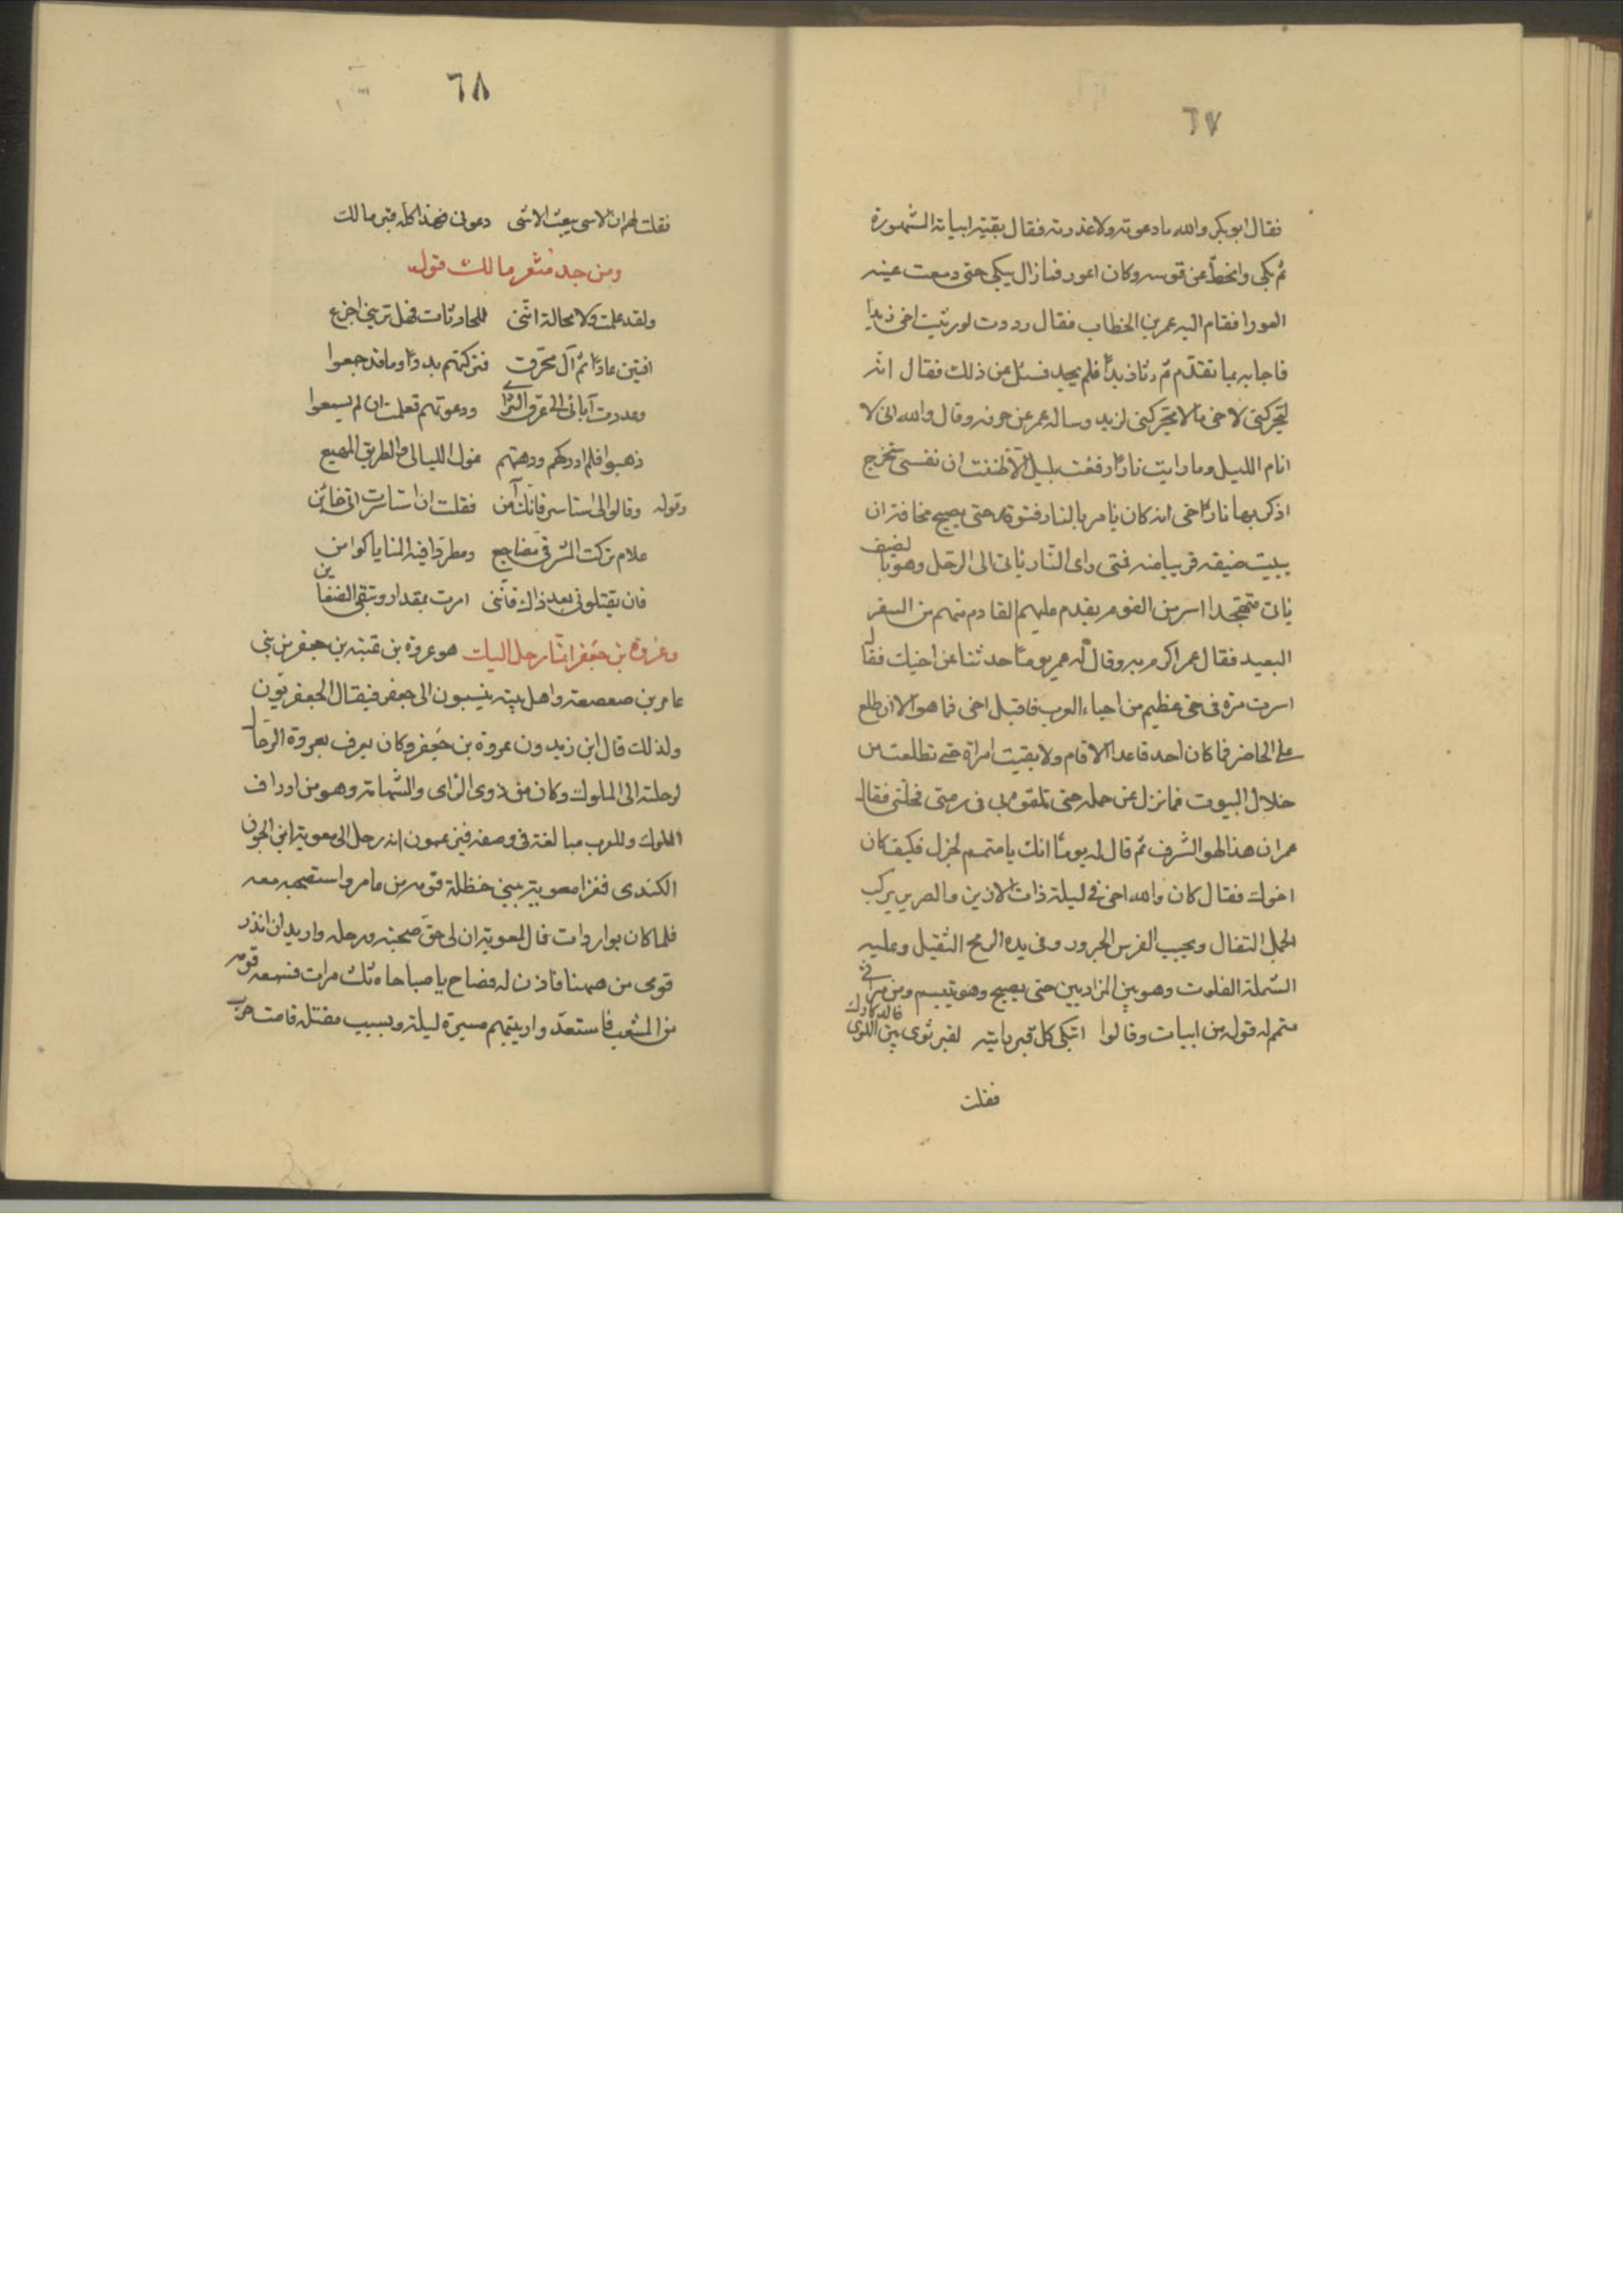 ٦٧
فقال ابو بكر والله ما دعوته ولا غدرته فقال بقية ابياته المشهورة
ثم بكى وانحط عن قوسه وكان اعور فما زال يبكى حتى دمعت عينه
العورا فقام اليه عمر بن الخطاب فقال وددت لو رثيت اخى زيدا
فاجابه بما تقدم ثم رثا زيدا فلم يجد فسئل عن ذلك فقال انه
ليحركنى لاخى ما لا يحركنى لزيد وساله عمر عن حزنه وقال والله انى لا
انام الليل وما رايت نارا رفعت بليل الا ظننت ان نفسى ستخرج
اذكر بها نار اخى انه كان يامر بالنار فتوقد حتى يصبح مخافة ان
يبيت ضيفه قريبا منه فمتى راى النار ياتى الى الرحل وهو بالضيف
ياتى متهجدا اسر من القوم يقدم عليهم القادم منهم من السفر
البعيد فقال عمر اكرم به وقال له عمر يوما حدثنا عن اخيك فقال
اسرت مرة فى حى عظيم من احياء العرب فاقبل اخى فما هو الا ان طلع
على الحاضر فما كان احد قاعدا الا قام ولا بقيت امراة حتى تطلعت من
خلال البيوت فما نزل عن جمله حتى تلقوه بى فى رمتى فحلنى فقال
عمر ان هذا لهو الشرف ثم قال له يوما انك يا متمم لجزل فكيف كان
اخوك فقال كان والله اخى فى ليلة ذات الازيز والصرير يركب
الجمل الثفال ويجنب الفرس الجرور وفى يده الرمح الثقيل وعليه
الشملة الفلوت وهو بين المزادتين حتى يصبح وهو يتبسم ومن مراثى
متمم له قوله من ابيات وقالوا اتبكى كل قبر رايته لقبر ثوى بين اللوى فالدكادك
فقلت
٦٨
فقلت لهم ان الاسى يبعث الاسى دعونى فهذا كله قبر مالك
ومن جيد شعر مالك قوله
ولقد علمت ولا محالة اننى للحادثات فهل ترينى اجزع
افنين عادا ثم آل محرق فتركنهم بددا وما قد جمعوا
وعددت آبائى الى عرق الثرى ودعوتهم فعلمت ان لم يسمعوا
ذهبوا فلم ادركهم ودهتهم غول الليالى والطريق المهيع
وقوله وقالوا لى استاسر فانك آمن فقلت ان استاسرت انى خائن
علام تركت المشرفى مضاجع ومطردا فيه المنايا كوامن
فان يقتلونى بعد ذاك فاننى امرت بمقدار وتبقى الضغاين
وعروة بن جعفر انما رحل اليك هو عروة بن عتبة بن جعفر من بنى
عامر بن صعصعة واهل بيته ينسبون الى جعفر فيقال الجعفريون
ولذلك قال ابن زيدون عروة بن جعفر وكان يعرف بعروة الرحال
لرحلته الى الملوك وكان من ذوى الراى والشهامة وهو من ارداف
الملوك وللعرب مبالغة فى وصفه فيزعمون انه رحل الى معوية ابن الجون
الكندى فغزا معوية ببنى حنظلة قوم من عامر واستصحبه معه
فلما كان بواردات قال لمعوية ان لى حق صحبة ورحلة واريد ان انذر
قومى من ههنا فاذن له فصاح يا صباحاه ثلث مرات فسمعه قومه
من الشعب فاستعد واريبتهم مسيرة ليلة وبسبب مقتله قامت حرب